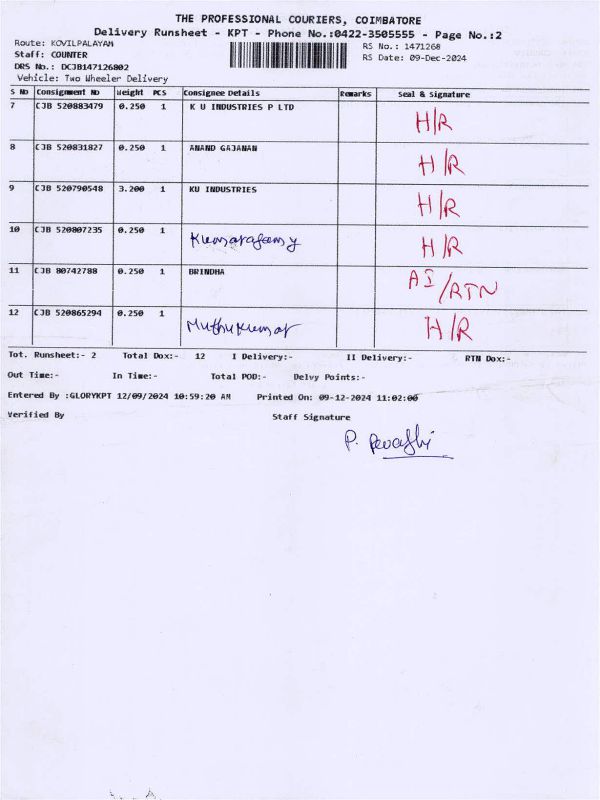 THE PROFESSIONAL COURIERS, COIMBATORE
Delivery Runsheet - KPT - Phone No.:0422-3505555 - Page No.:2
Route: KOVILPALAYAM RS No.: 1471268
Staff: COUNTER RS Date: 09-Dec-2024
DRS No.: DCJB147126802
Vehicle: Two Wheeler Delivery
S No Consignment No Weight PCS Consignee Details Remarks Seal & Signature
7 CJB 520883479 0.250 1 K U INDUSTRIES P LTD H/R
8 CJB 520831827 0.250 1 ANAND GAJANAN H/R
9 CJB 520790548 3.200 1 KU INDUSTRIES H/R
10 CJB 520807235 0.250 1 H/R
11 CJB 80742788 0.250 1 BRINDHA AI/RTN
12 CJB 520865294 0.250 1 Muthukumar H/R
Tot. Runsheet:- 2 Total Dox:- 12 I Delivery:- II Delivery:- RTN Dox:-
Out Time:- In Time:- Total POD:- Delvy Points:-
Entered By :GLORYKPT 12/09/2024 10:59:20 AM Printed On: 09-12-2024 11:02:00
Verified By Staff Signature
P.